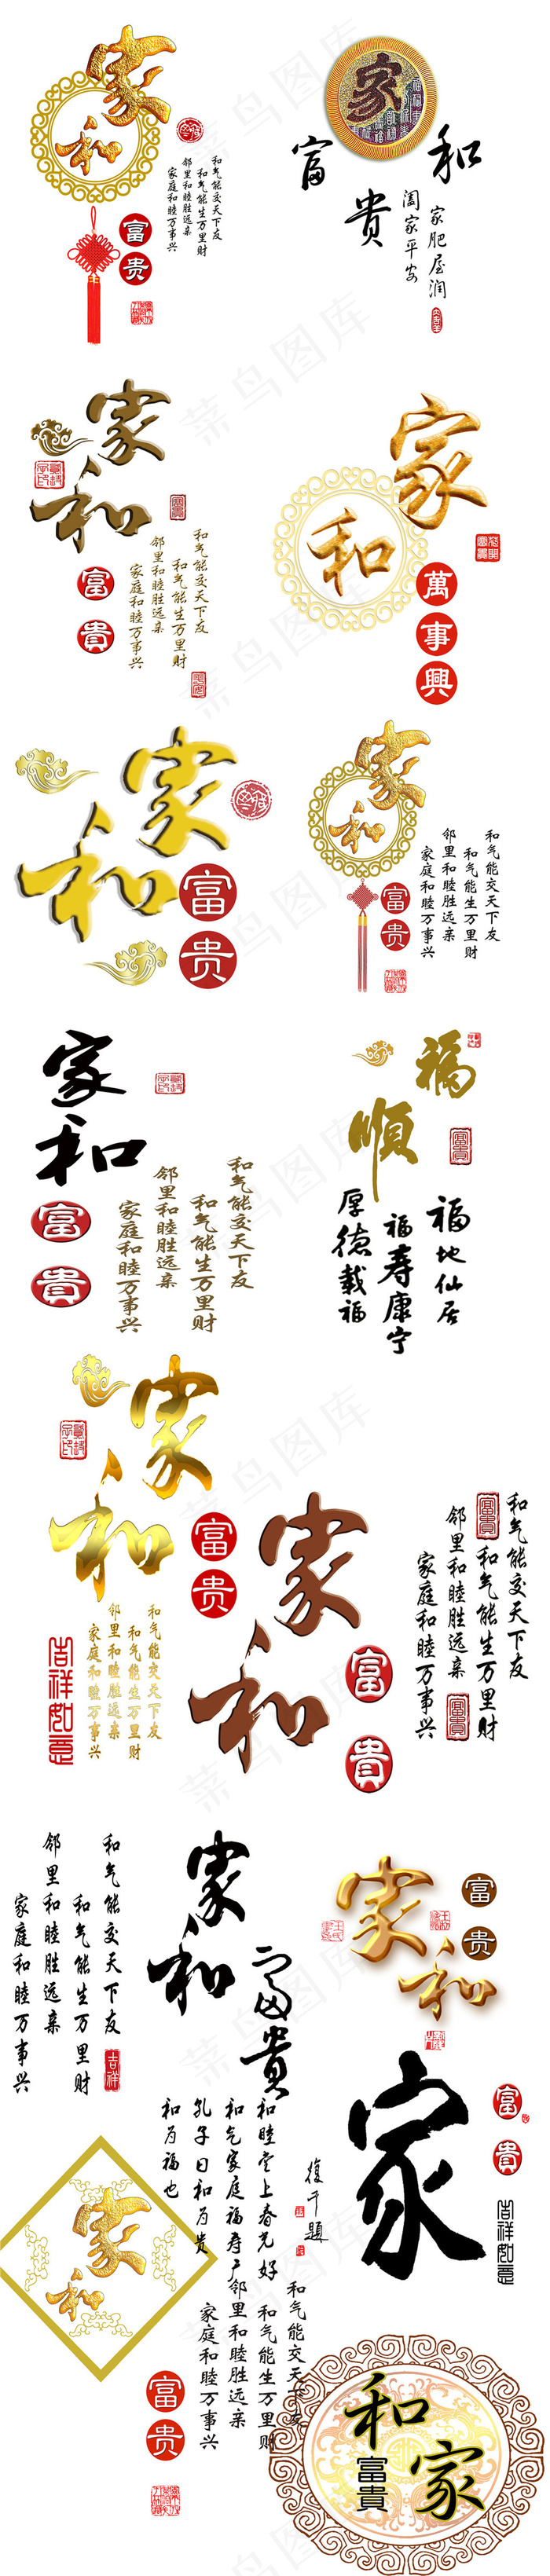 家
和
富
贵
和气能交天下友
和气能生万里财
邻里和睦胜远亲
家庭和睦万事兴
家
和
富
貴
家肥屋润
阖家平安
家
和
富
貴
和气能交天下友
和气能生万里财
邻里和睦胜远亲
家庭和睦万事兴
家
和
萬
事
興
家
和
富
贵
家
和
富
贵
和气能交天下友
和气能生万里财
邻里和睦胜远亲
家庭和睦万事兴
家
和
富
貴
和气能交天下友
和气能生万里财
邻里和睦胜远亲
家庭和睦万事兴
福
順
富貴
福地仙居
福寿康宁
厚德载福
家
和
富
贵
和气能交天下友
和气能生万里财
邻里和睦胜远亲
家庭和睦万事兴
吉祥如意
家
和
富
貴
和气能交天下友
富貴
和气能生万里财
邻里和睦胜远亲
富貴
家庭和睦万事兴
和气能交天下友
和气能生万里财
邻里和睦胜远亲
家庭和睦万事兴
吉祥
家
和
富
貴
家
和
富
贵
和睦堂上春光好
和气家庭福寿广
孔子曰和为贵
和为福也
家
富
貴
吉祥如意
家
和
富
贵
和气能交天下友
和气能生万里财
邻里和睦胜远亲
家庭和睦万事兴
和
家
富
貴
菜鸟图库